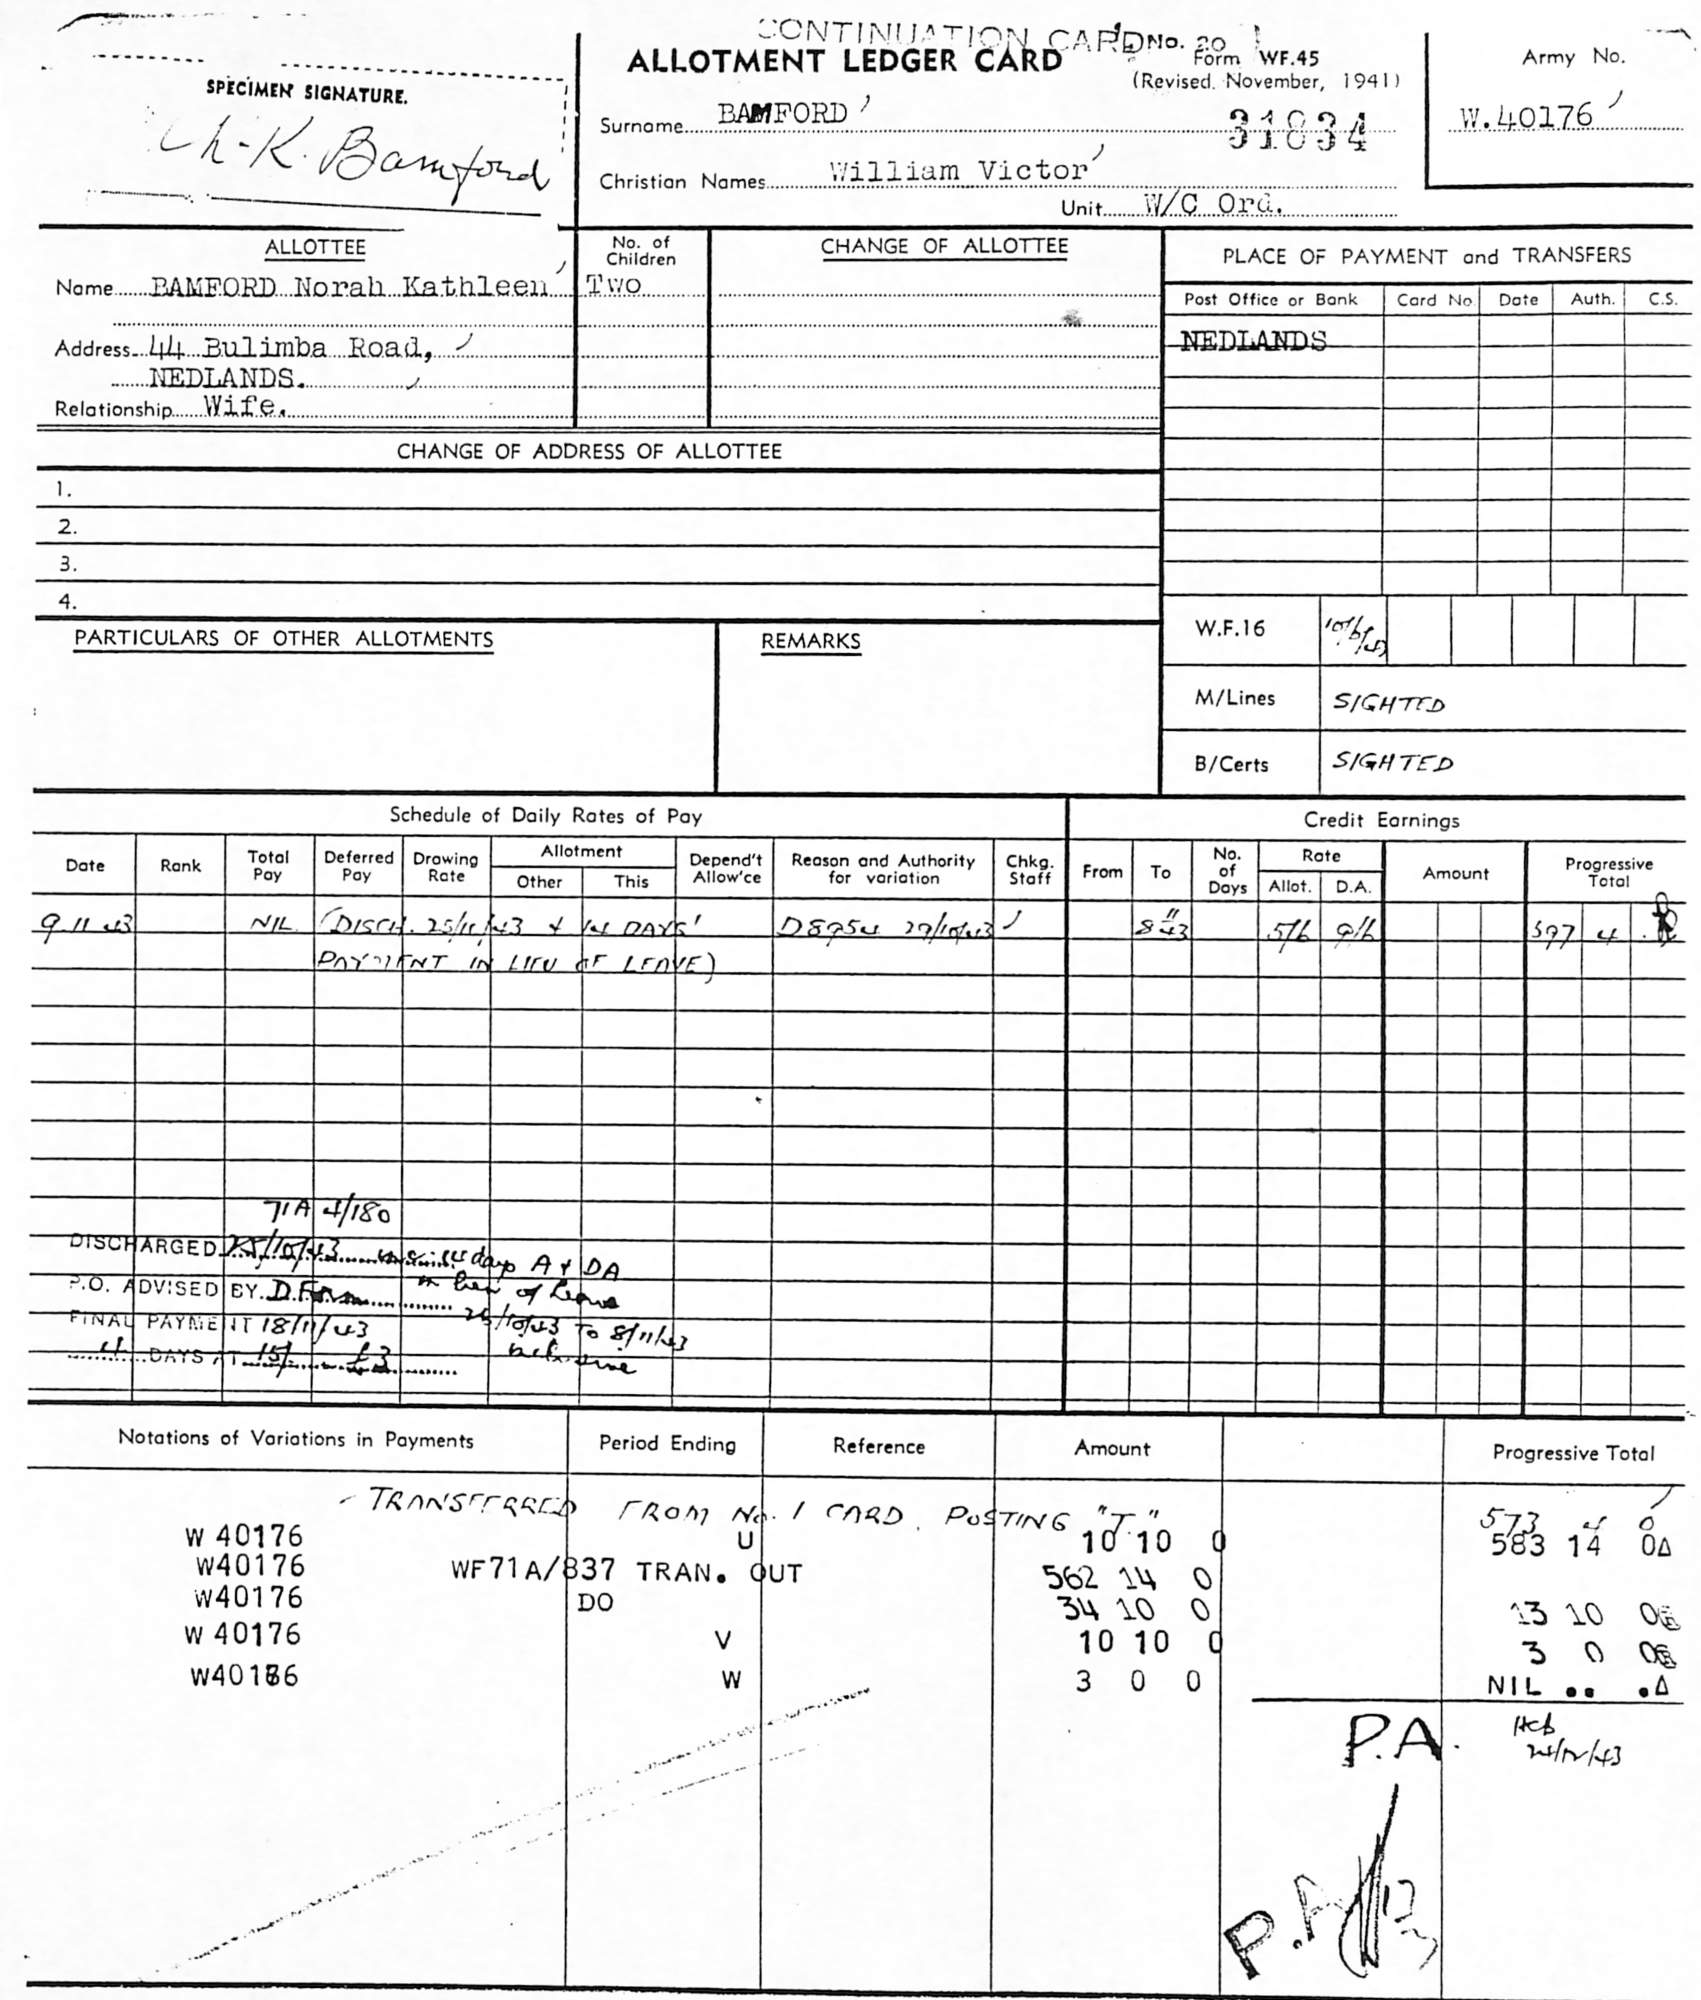 CONTINUATION CARD No. 20
ALLOTMENT LEDGER CARD
Form WF.45
(Revised. November, 1941)
Army No.
W.40176
SPECIMEN SIGNATURE.
N.K. Bamford
Surname BAMFORD
31834
Christian Names William Victor
Unit W/C Ord.
ALLOTTEE
Name BAMFORD Norah Kathleen
Address 44 Bulimba Road,
NEDLANDS.
Relationship Wife.
No. of Children
Two
CHANGE OF ALLOTTEE
PLACE OF PAYMENT and TRANSFERS
Post Office or Bank Card No Date Auth. C.S.
NEDLANDS
CHANGE OF ADDRESS OF ALLOTTEE
1.
2.
3.
4.
PARTICULARS OF OTHER ALLOTMENTS
REMARKS
W.F.16
M/Lines SIGHTED
B/Certs SIGHTED
Schedule of Daily Rates of Pay
Credit Earnings
Date Rank Total Pay Deferred Pay Drawing Rate Allotment Other This Depend't Allow'ce Reason and Authority for variation Chkg. Staff From To No. of Days Rate Allot. D.A. Amount Progressive Total
9.11.43 NIL (DISCH. 25/10/43 + 14 DAYS' D8954 29/10/43 8 11 43 5/6 9/6 597 4
PAYMENT IN LIEU OF LEAVE)
71A 4/180
DISCHARGED 25/10/43 14 days A & DA
in lieu of Leave
P.O. ADVISED BY D.Form
26/10/43 to 8/11/43
inclusive
FINAL PAYMENT 18/11/43
4 DAYS AT 15/- £3
Notations of Variations in Payments Period Ending Reference Amount Progressive Total
TRANSFERRED FROM No. 1 CARD. POSTING "T." 573 4 0
W 40176 U 10 10 0 583 14 0Δ
W40176 WF71A/837 TRAN. OUT 562 14 0
W40176 DO 34 10 0 13 10 0
W 40176 V 10 10 0 3 0 0
W40186 W 3 0 0 NIL .. .Δ
P.A.
P.A